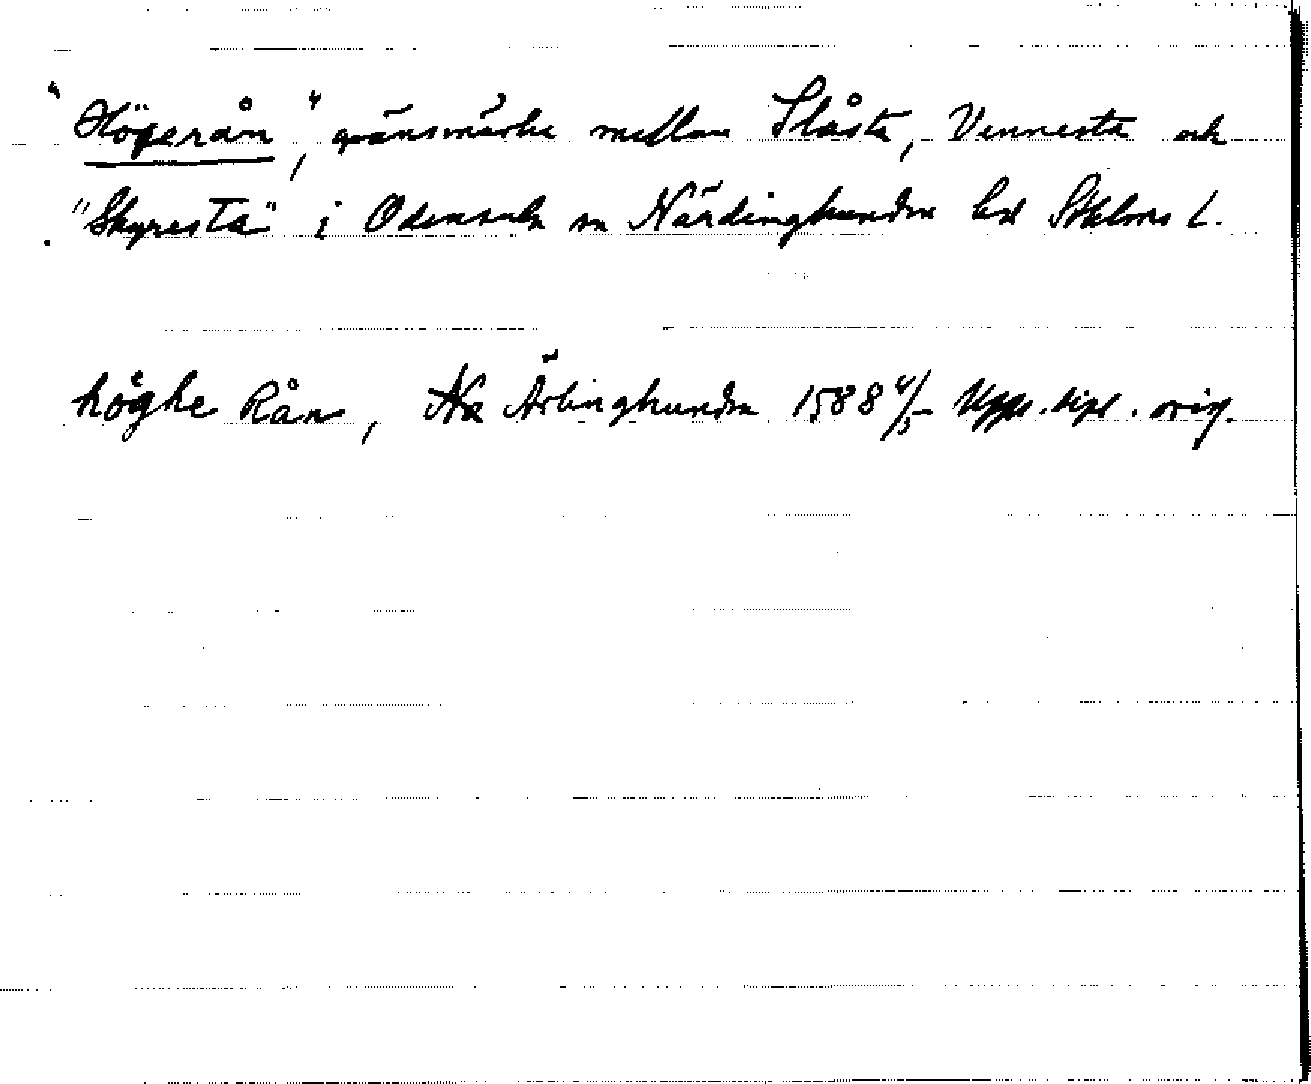 "Högerån", gränsmärke mellan Slåsta, Vennesta och
"Skyresta" i Odensala sn Närdinghundra hd Sthlms L.
höghe Rån, Ärlinghundra 1588 4/5 Upps. dipl. orig.